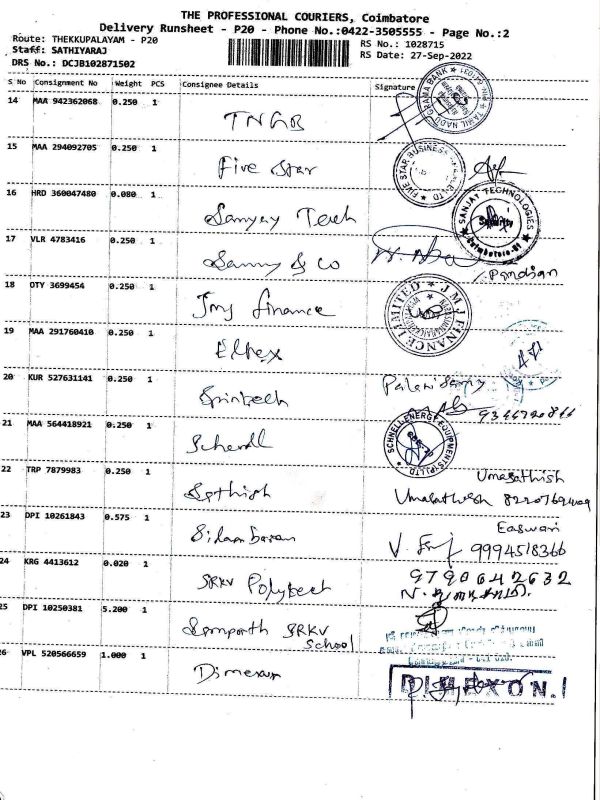 THE PROFESSIONAL COURIERS, Coimbatore
Delivery Runsheet - P20 - Phone No.:0422-3505555 - Page No.:2
Route: THEKKUPALAYAM - P20
RS No.: 1028715
Staff: SATHIYARAJ
RS Date: 27-Sep-2022
DRS No.: DCJB102871502
S No Consignment No Weight PCS Consignee Details Signature
14 MAA 942362068 0.250 1 TNGB
TAMIL NADU GRAMA BANK
15 MAA 294092705 0.250 1 Five Star
FIVE STAR BUSINESS LTD
16 HRD 360047480 0.080 1 Sanjay Tech
SANJAY TECHNOLOGIES
Coimbatore
17 VLR 4783416 0.250 1 Sanny & Co
Pandian
18 OTY 3699454 0.250 1 Jmj finance
JMJ FINANCE LIMITED
19 MAA 291760410 0.250 1 Eltex
20 KUR 527631141 0.250 1 Printech
Palanisamy
21 MAA 564418921 0.250 1 Schenll
SCHNELLENERGY EQUIPMENTS (P) LTD
22 TRP 7879983 0.250 1 Sathish
Umasathish
Umasathish
23 DPI 10261843 0.575 1 Sidambaram
Easwari
V. 9994518366
24 KRG 4413612 0.020 1 SRKV Polytech
9790642632
25 DPI 10250381 5.200 1 Sampath SRKV School
26 VPL 520566659 1.000 1 Dimexon
DIMEXON